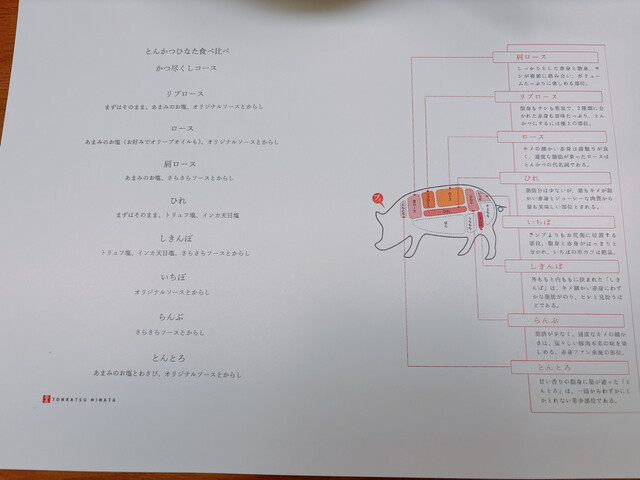 とんかつひなた食べ比べ
かつ尽くしコース
リブロース
まずはそのまま、あまみのお塩、オリジナルソースとからし
ロース
あまみのお塩（お好みでオリーブオイルも）、オリジナルソースとからし
肩ロース
あまみのお塩、さらさらソースとからし
ひれ
まずはそのまま、トリュフ塩、インカ天日塩
しきんぼ
トリュフ塩、インカ天日塩、さらさらソースとからし
いちぼ
オリジナルソースとからし
らんぷ
さらさらソースとからし
とんとろ
あまみのお塩とわさび、オリジナルソースとからし
TONKATSU HINATA
肩ロース
しっかりとした赤身と脂身、サ
シが複雑に絡み合い、ボリュー
ムたっぷりに楽しめる部位。
リブロース
脂身もサシも豊富で、2種類に分
かれた赤身も旨味たっぷり。とん
かつにするには極上の部位。
ロース
キメの細かい赤身は歯触りが良
く、適度な脂肪が乗ったロースは
とんかつの代名詞である。
ひれ
脂肪分は少ないが、最もキメが細
かい赤身とジューシーな肉質から
最も美味しい部位とされる。
いちぼ
ランプよりもお尻側に位置する
部位。脂身と赤身がはっきりと
分かれ、いちぼのカツは絶品。
しきんぼ
外ももと内ももに挟まれた「しき
んぼ」は、キメ細かい赤身にわず
かな脂肪がのり、ヒレと見紛うほ
どである。
らんぷ
脂肪が少なく、適度なキメの細か
さは、猛々しい豚肉本来の味を楽
しめる。赤身ファン垂涎の部位。
とんとろ
甘い香りの脂身に筋が通った「と
んとろ」は、一頭からわずかにし
かとれない希少部位である。